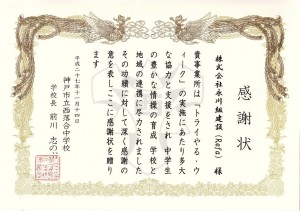 感謝状
株式会社永川組建設(Rafa) 様
貴事業所は「トライやる・ウ
ィーク」の実施にあたり多大
な協力と支援をされ 中学生
の豊かな情操の育成 学校と
地域の連携に尽力されました
その功績に対して深く感謝の
意を表しここに感謝状を贈り
ます
平成二十七年十一月十四日
神戸市立西落合中学校
学校長 前川 志の